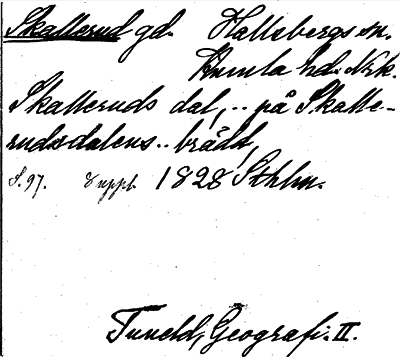 Skallerud gd. Hallsbergs sn.
Kumla hd. Nrk.
Skalleruds dal, .. på Skalle-
rudsdalens .. brädd,
S. 97. 8 uppl. 1828 Sthlm.
Tuneld, Geografi. II.